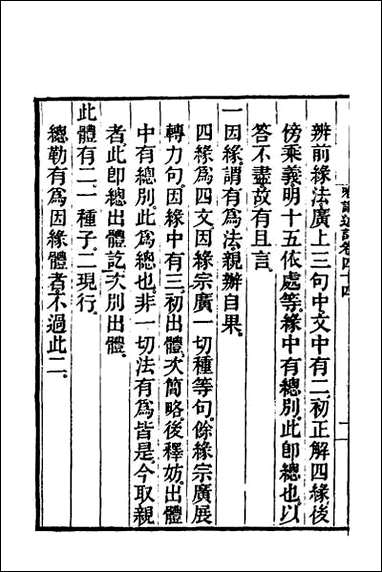 唯識述記卷四十四
辨前緣法廣上三句中文中有二初正解四緣後
傍乘義明十五依處等緣中有總別此卽總也以
答不盡故有且言
一因緣謂有爲法親辦自果
四緣爲四文因緣宗廣一切種等句餘緣宗廣展
轉力句因緣中有三初出體次簡略後釋妨出體
中有總別此爲總也非一切法有爲皆是今取親
者此卽總出體訖次別出體
此體有二一種子二現行
總勒有爲因緣體者不過此二